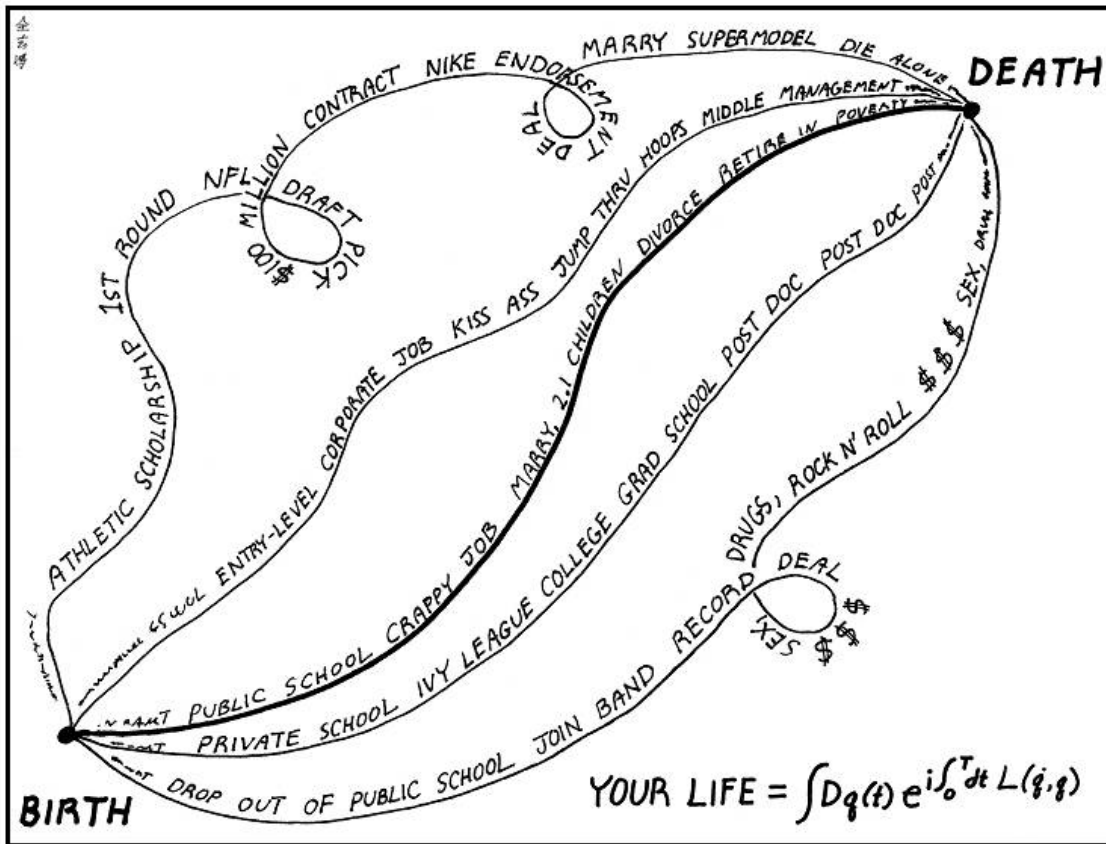 DEATH
ATHLETIC SCHOLARSHIP 1ST ROUND NFL DRAFT PICK $100 MILLION CONTRACT NIKE ENDORSEMENT DEAL MARRY SUPERMODEL DIE ALONE
ENTRY-LEVEL CORPORATE JOB KISS ASS JUMP THRU HOOPS MIDDLE MANAGEMENT
PUBLIC SCHOOL CRAPPY JOB MARRY, 2.1 CHILDREN DIVORCE RETIRE IN POVERTY
PRIVATE SCHOOL IVY LEAGUE COLLEGE GRAD SCHOOL POST DOC POST DOC POST
DROP OUT OF PUBLIC SCHOOL JOIN BAND RECORD DEAL $ $ $ $ SEX, DRUGS, ROCK N' ROLL $ $ $ SEX, DRUGS
BIRTH
YOUR LIFE = ∫Dq(t) e^{i∫₀ᵀdt L(q̇,q)}